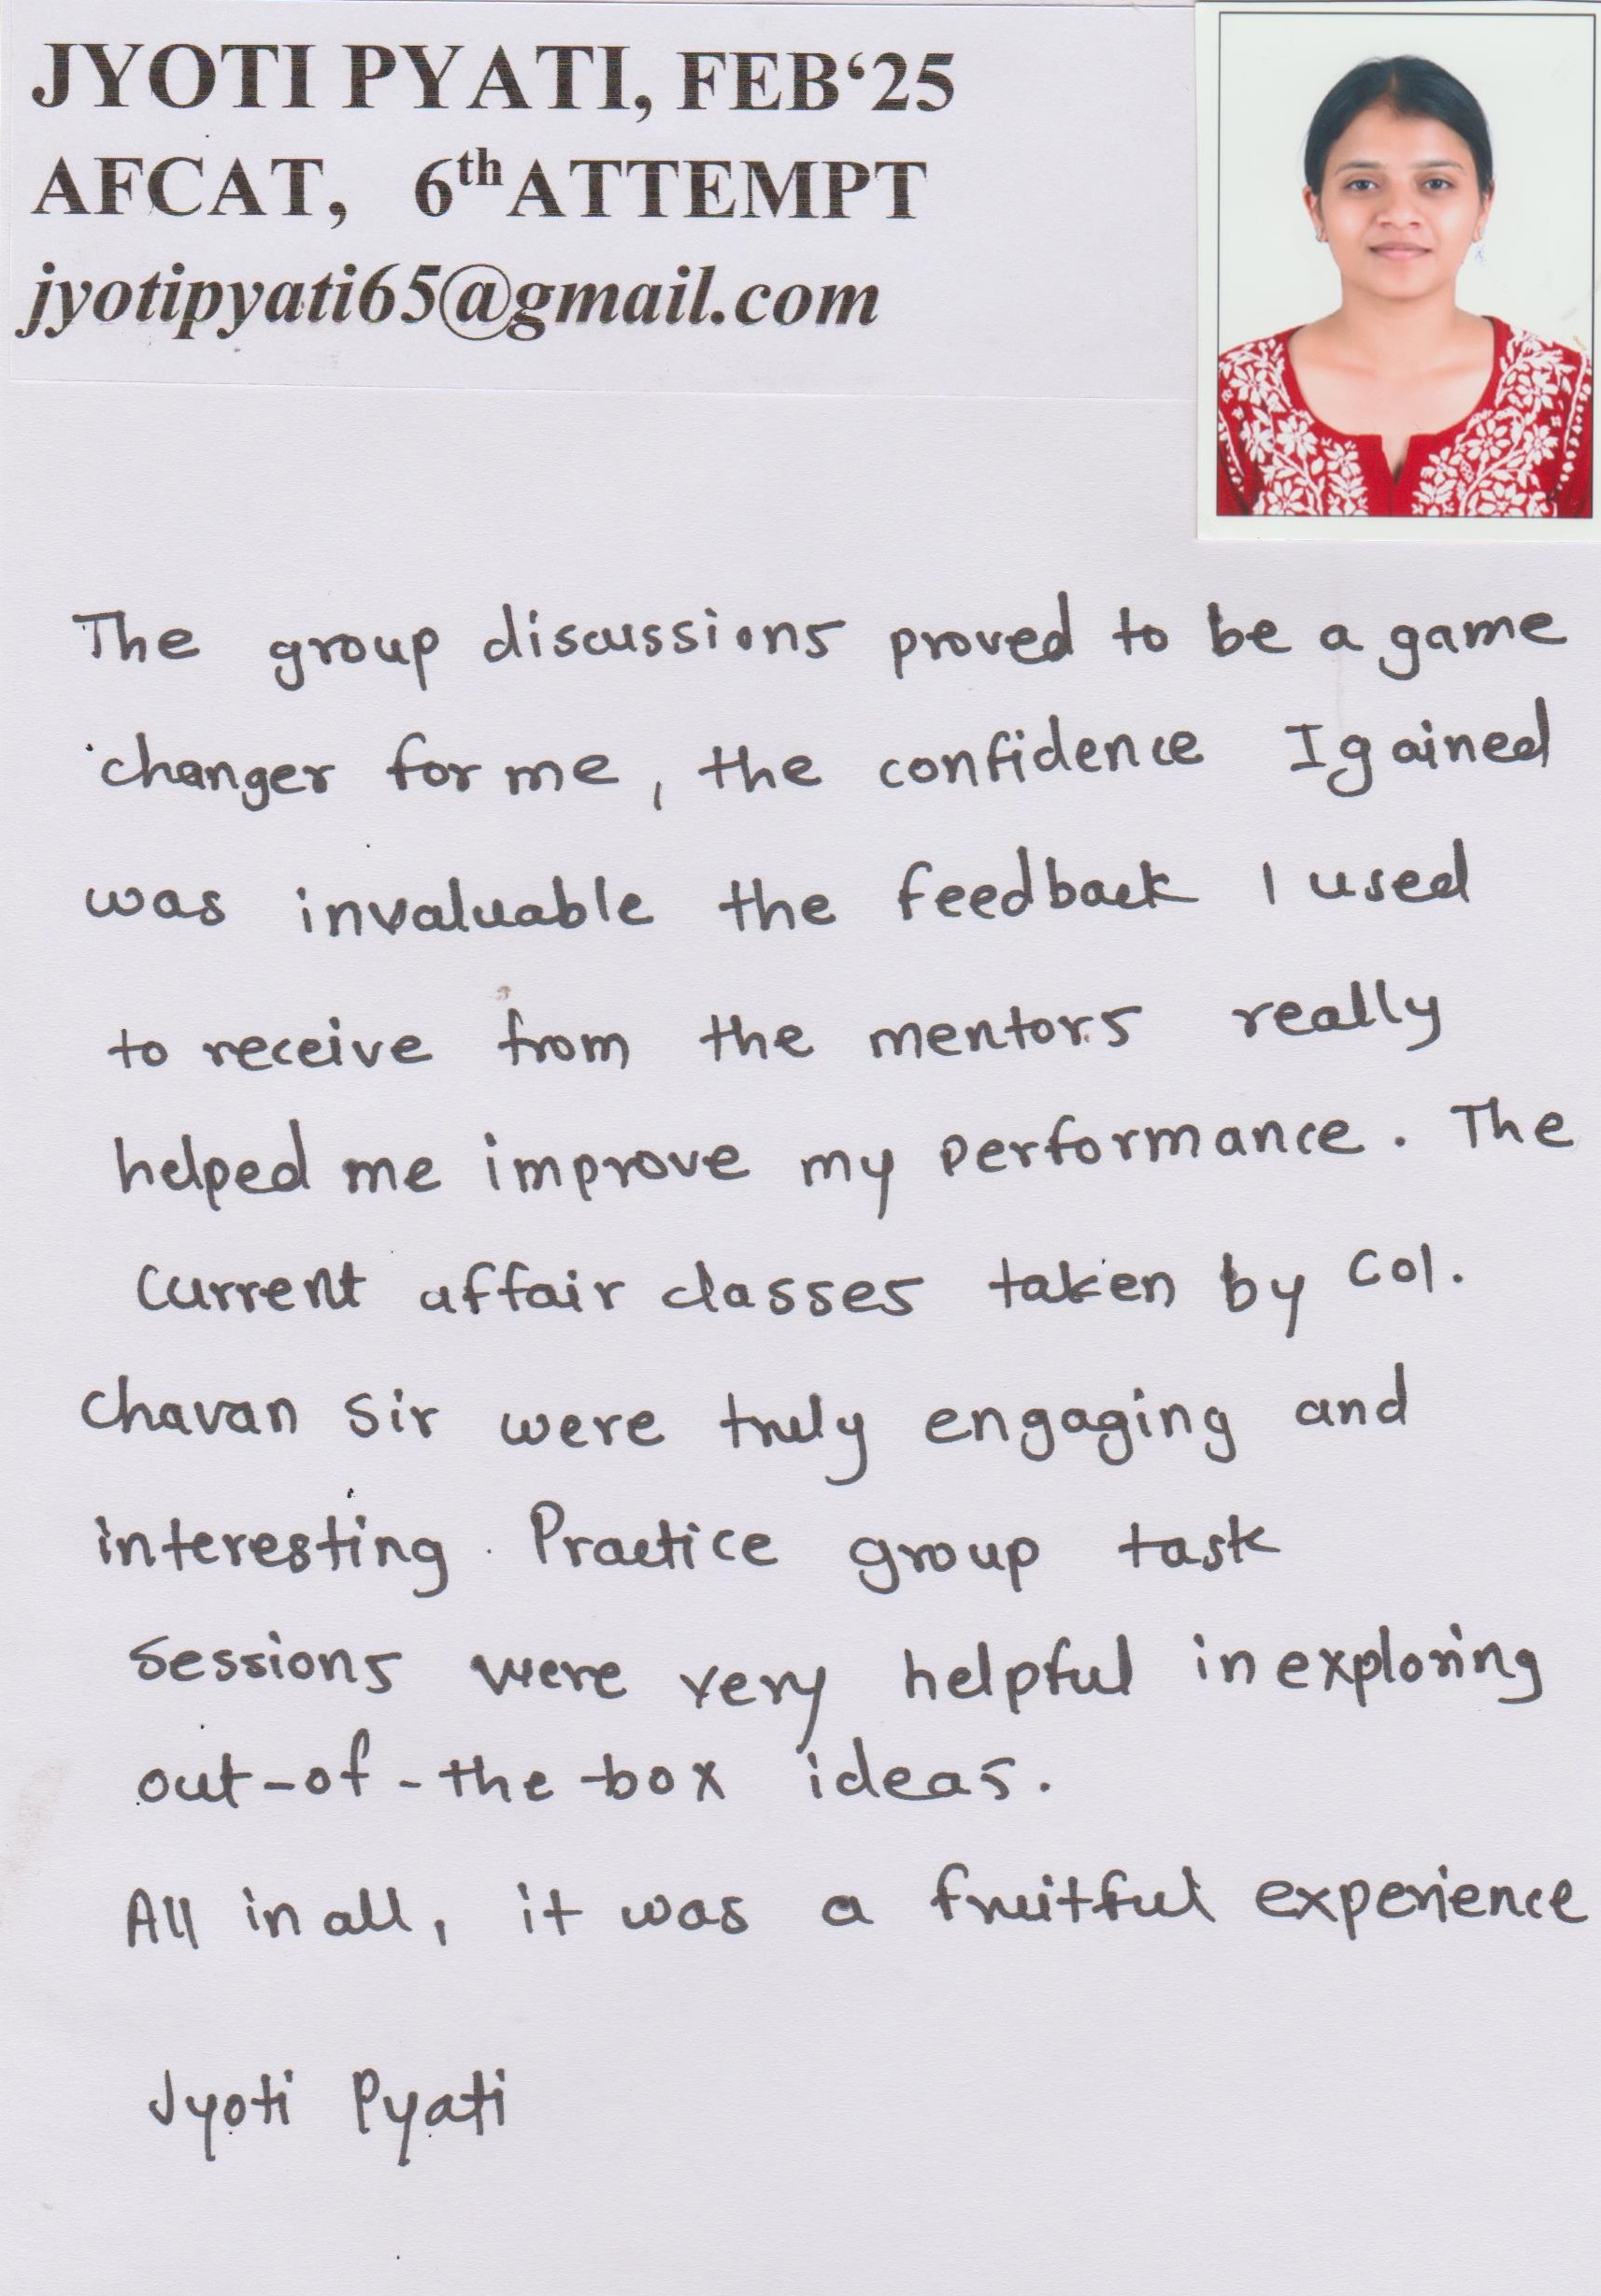 JYOTI PYATI, FEB‘25
AFCAT, 6th ATTEMPT
jyotipyati65@gmail.com
The group discussions proved to be a game
changer for me, the confidence I gained
was invaluable the feedback I used
to receive from the mentors really
helped me improve my performance. The
current affair classes taken by Col.
Chavan Sir were truly engaging and
interesting. Practice group task
sessions were very helpful in exploring
out-of-the-box ideas.
All in all, it was a fruitful experience
Jyoti Pyati